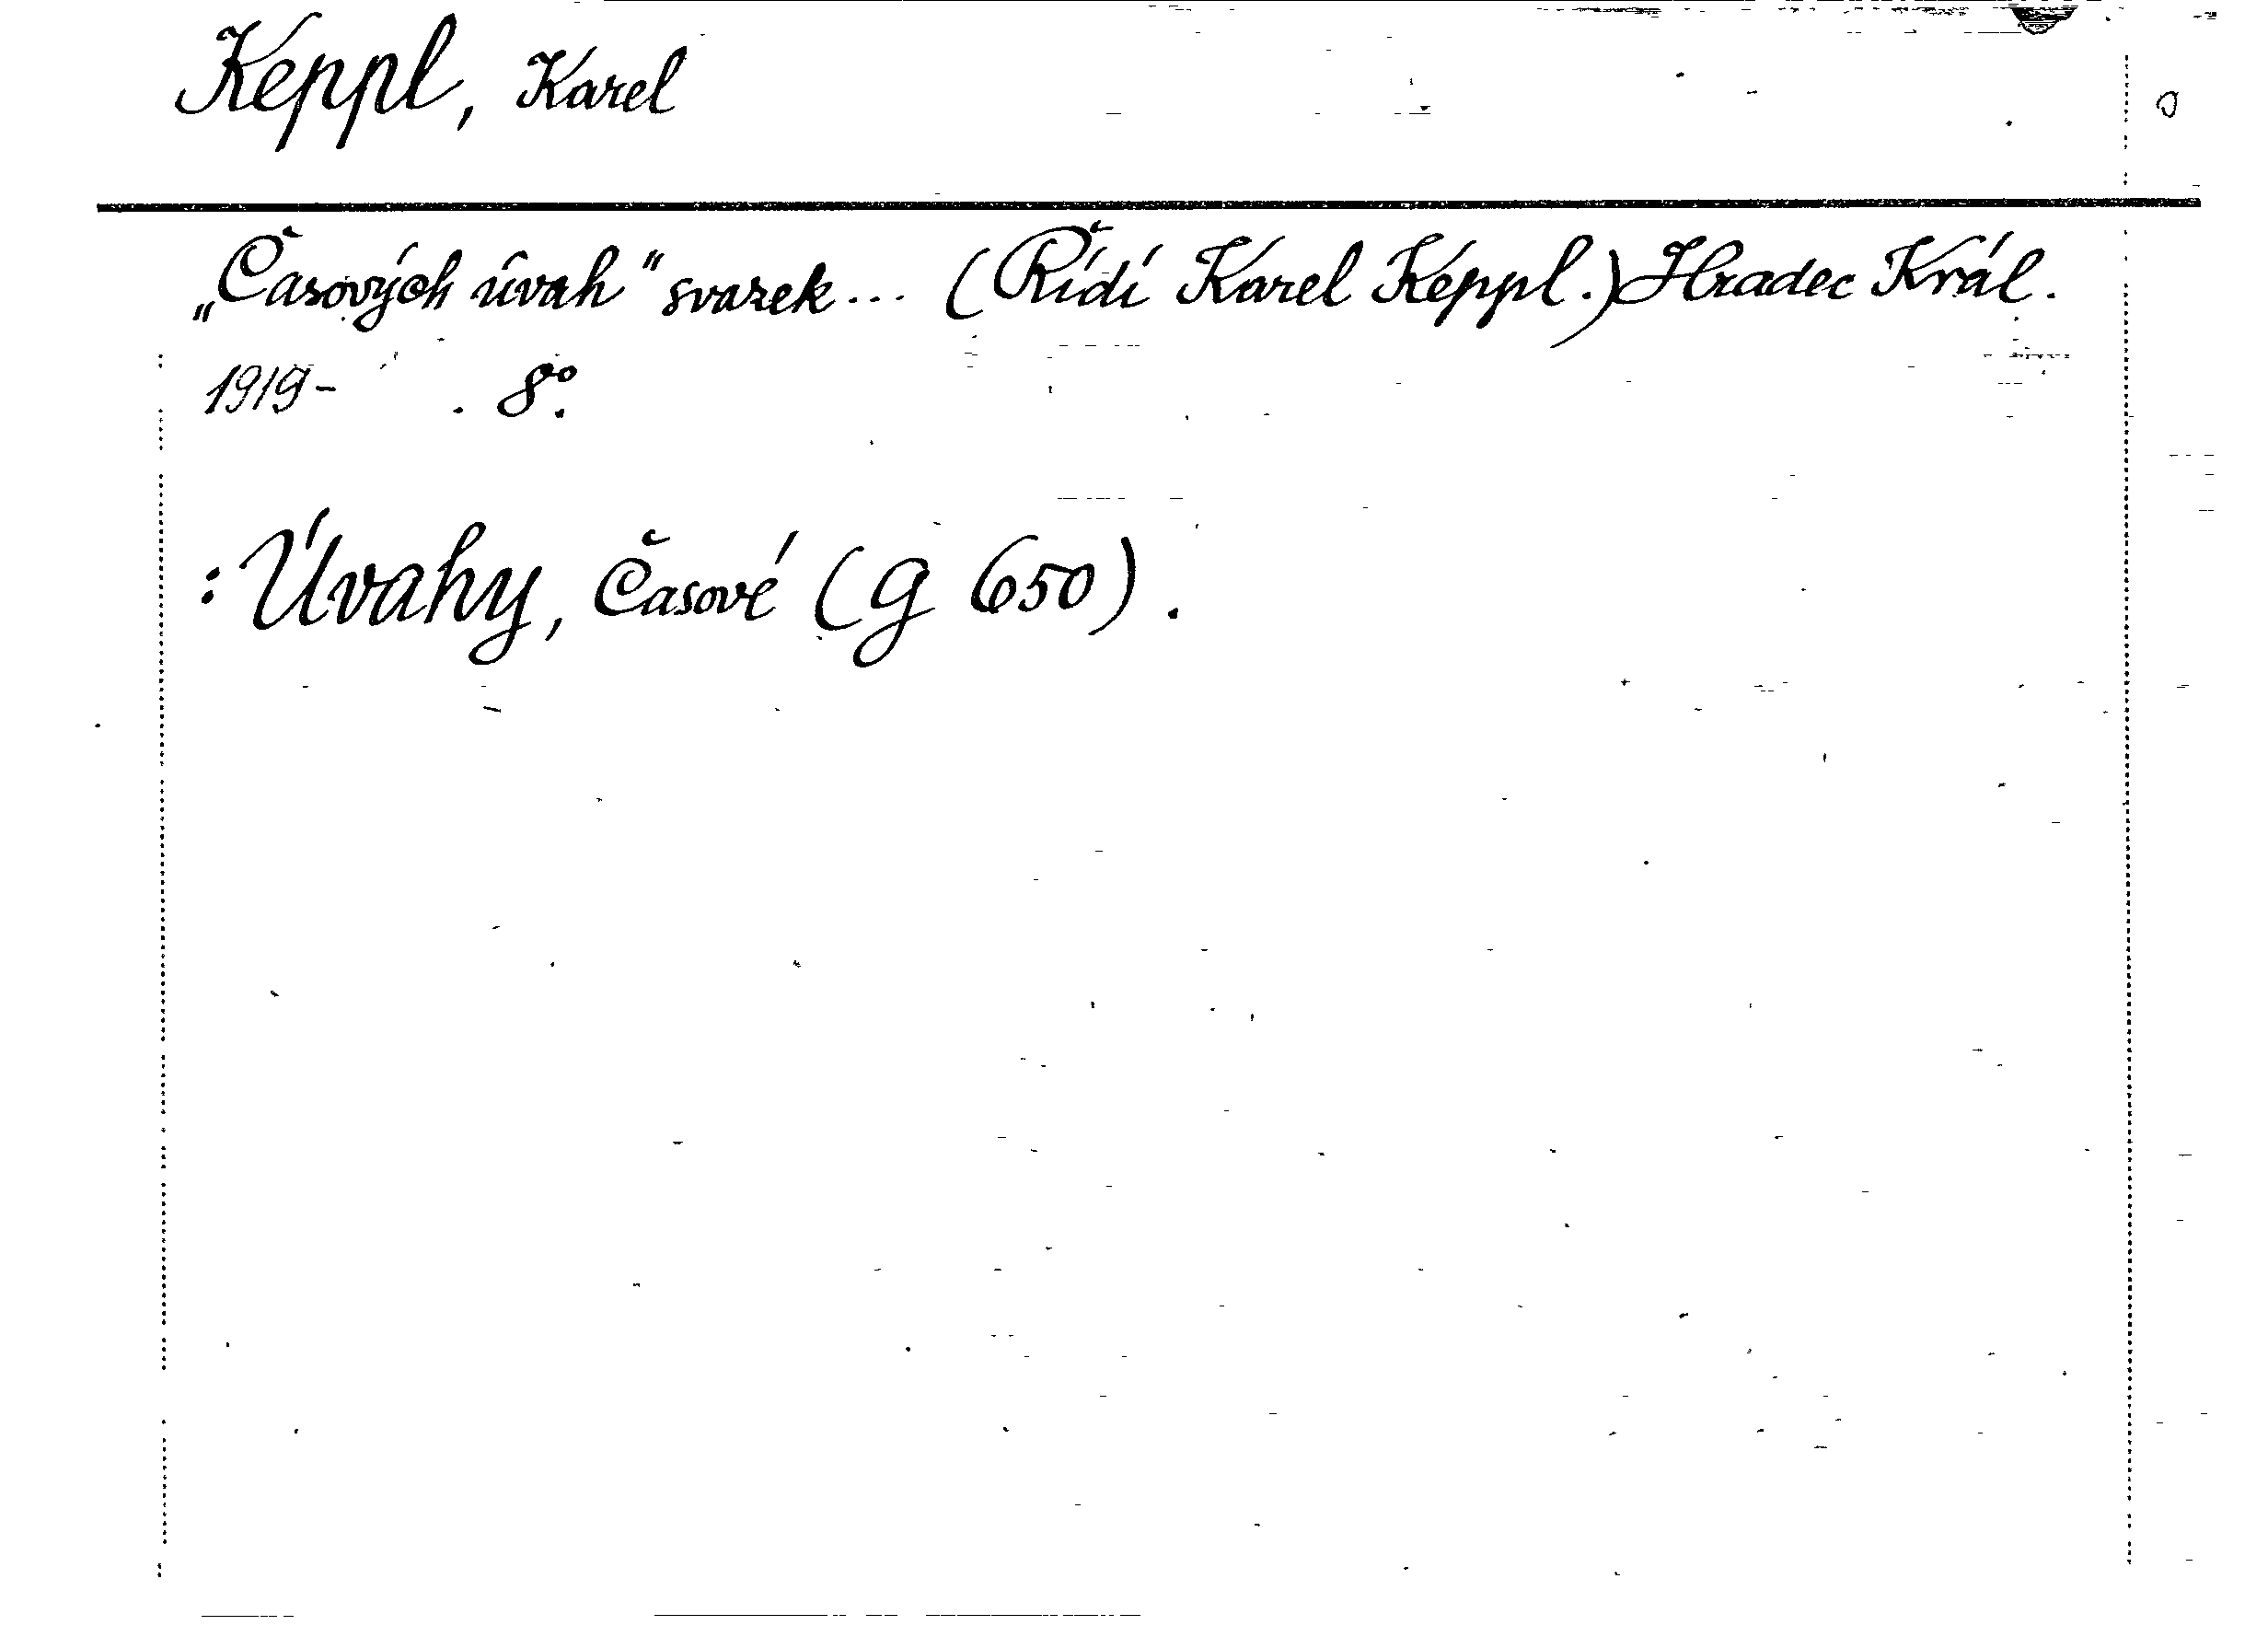 Keppl, Karel
„Časových úvah" svazek... (Řídí Karel Keppl.) Hradec Král.
1919- . 8°.
: Úvahy, Časové (G 650).